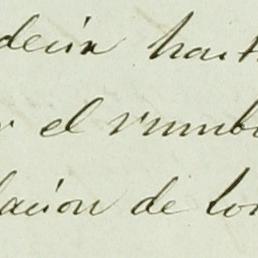 decia hast
r el rumb
lacion de los